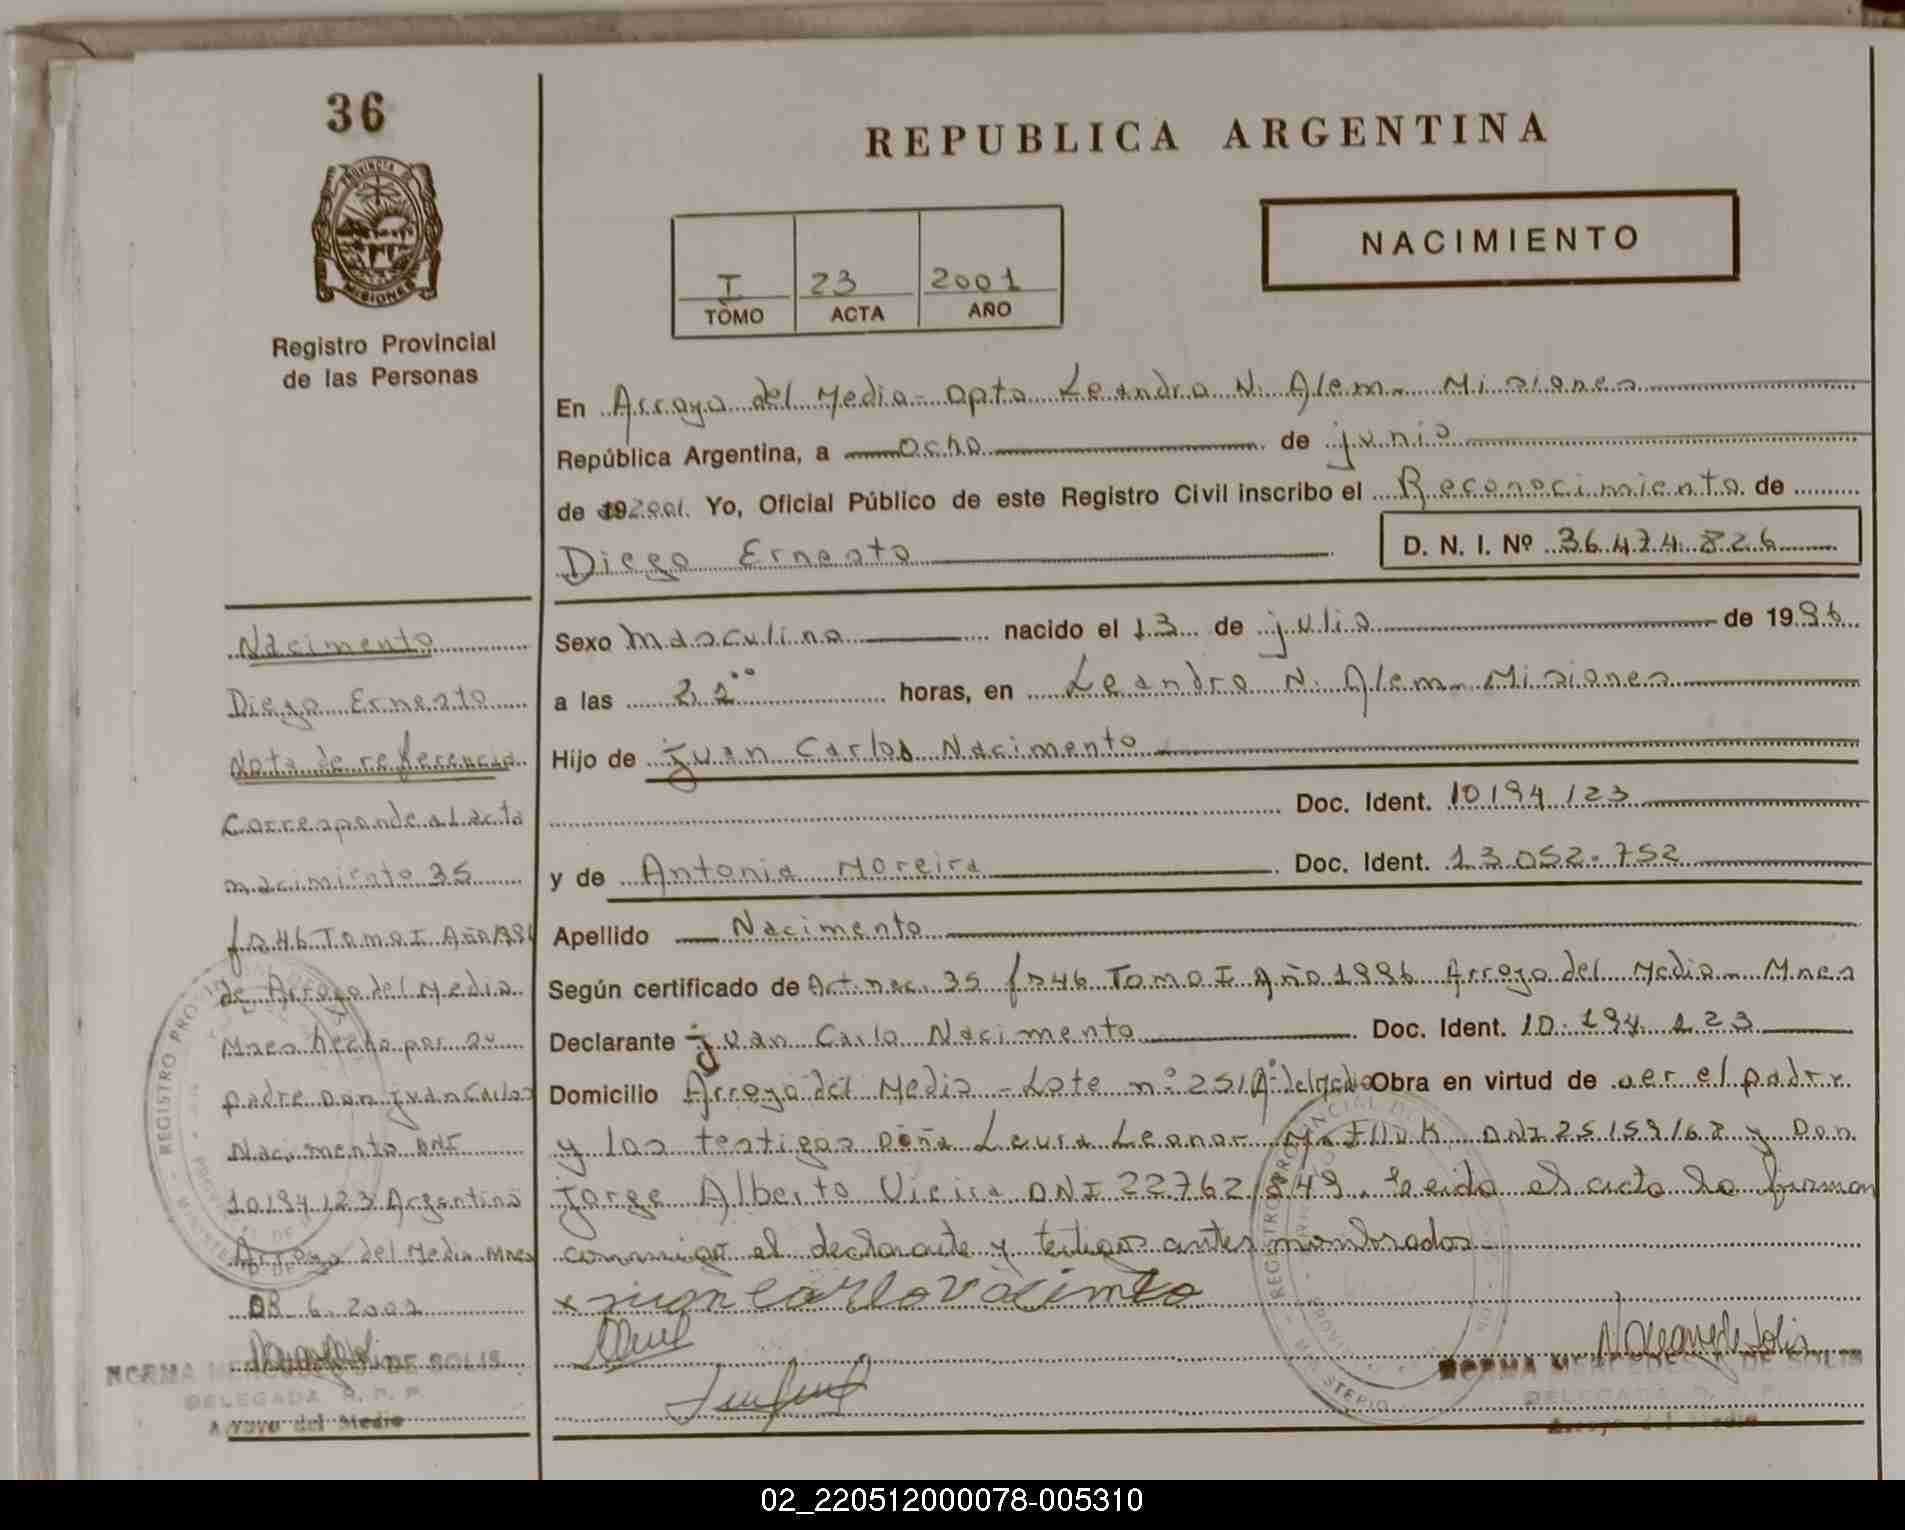 36
PROVINCIA DE
MISIONES
Registro Provincial
de las Personas
REPUBLICA ARGENTINA
NACIMIENTO
I 23 2001
TOMO ACTA AÑO
En Arroyo del Medio - Dpto Leandro N. Alem - Misiones
República Argentina, a ocho de junio
de 192001. Yo, Oficial Público de este Registro Civil inscribo el Reconocimiento de
Diego Ernesto D. N. I. Nº 36.474.826
Sexo masculino nacido el 13 de julio de 1996
a las 21°° horas, en Leandro N. Alem - Misiones
Hijo de Juan Carlos Nacimento
Doc. Ident. 10194123
y de Antonia Moreira Doc. Ident. 13.052.752
Apellido Nacimento
Según certificado de Act. nac. 35 fº 46 Tomo I Año 1996 Arroyo del Medio - Mnes
Declarante Juan Carlo Nacimento Doc. Ident. 10.194.123
Domicilio Arroyo del Medio - Lote nº 251 Aº del Medio Obra en virtud de ser el padre
y los testigos Doña Laura Leonor DNI 25159168 y Don
Jorge Alberto Vieira DNI 22762849. Leida el acta la firman
conmigo el declarante y testigos antes nombrados
x juan carlo nacimto
NORMA MERCEDES DE SOLIS
DELEGADA R. P. P.
Arroyo del Medio
Nacimento
Diego Ernesto
Nota de referencia
Corresponde al acta
nacimiento 35
fº 46 Tomo I Año 1996
de Arroyo del Medio
Mnes hecho por su
padre Don Juan Carlos
Nacimento DNI
10.194.123 Argentino
Arroyo del Medio Mnes
08.6.2001
NORMA MERCEDES DE SOLIS
DELEGADA R. P. P.
Arroyo del Medio
02_220512000078-005310